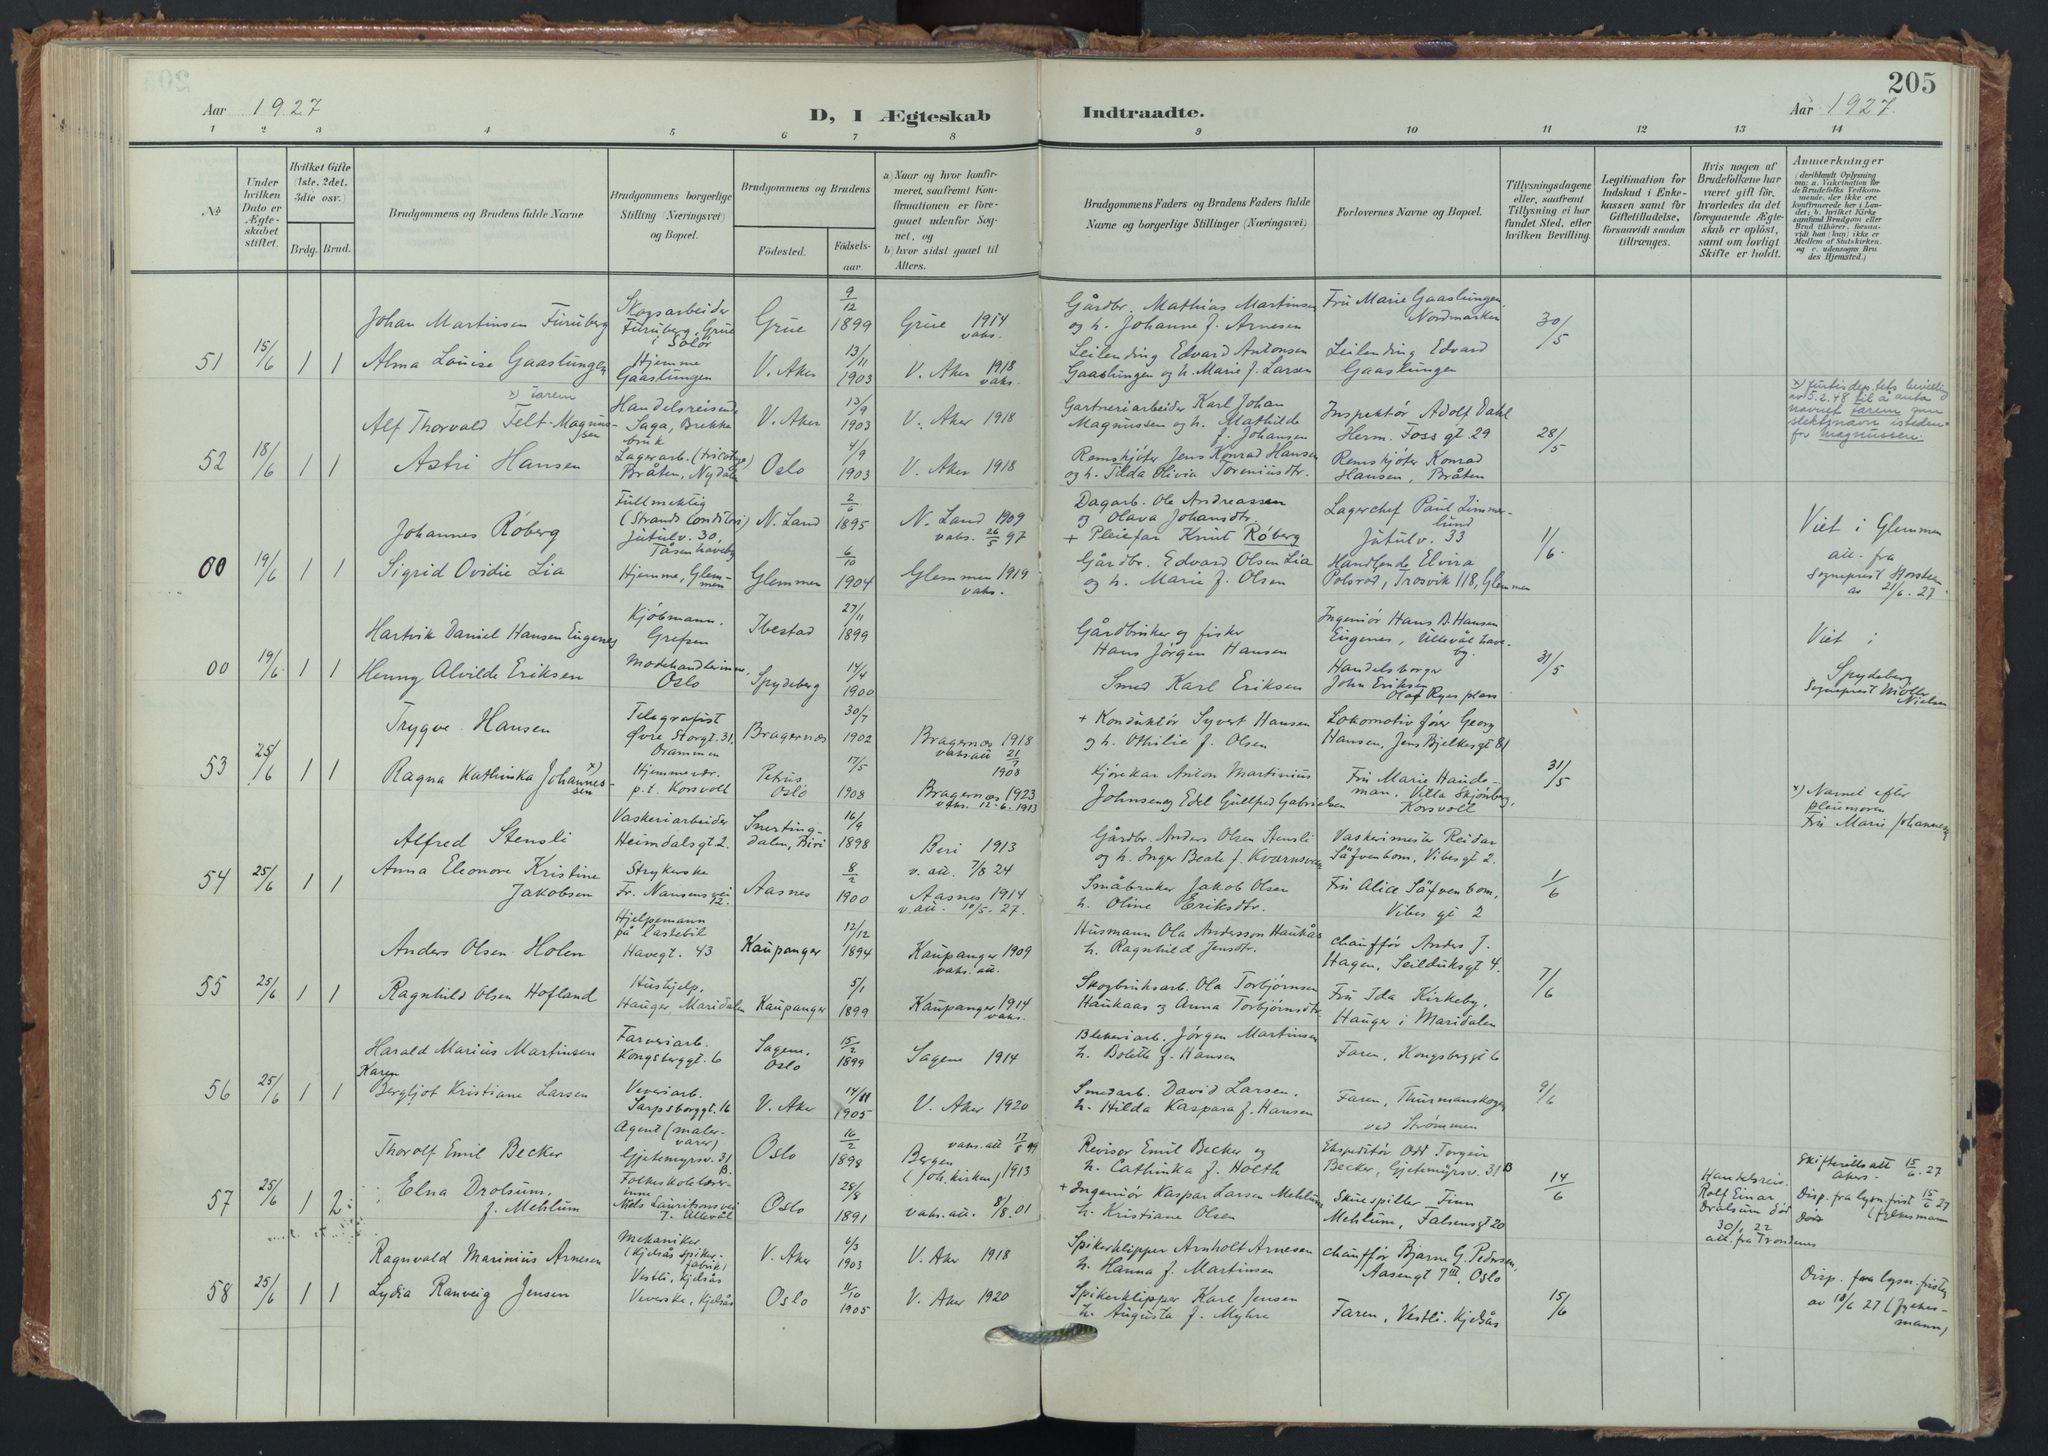 205
Aar 1927
D, I Ægteskab Indtraadte.
Aar 1927.
1 2 3 4 5 6 7 8 9 10 11 12 13 14
No
Under hvilken Dato er Ægteskabet stiftet.
Hvilket Gifte (1ste, 2det, 3die osv.)
Brdg. Brud.
Brudgommens og Brudens fulde Navne
Brudgommens borgerlige Stilling (Næringsvei) og Bopæl.
Brudgommens og Brudens
Födested.
Födselsaar.
a) Naar og hvor konfirmeret, saafremt Konfirmationen er foregaaet udenfor Sognet, og
b) hvor sidst gaaet til Alters.
Brudgommens Faders og Brudens Faders fulde Navne og borgerlige Stillinger (Næringsvei)
Forlovernes Navne og Bopæl.
Tillysningsdagene eller, saafremt Tillysning ei har fundet Sted, efter hvilken Bevilling.
Legitimation for Indskud i Enkekassen samt for Giftetilladelse, forsaavidt saadan tiltrænges.
Hvis nogen af Brudefolkene har været gift før, hvorledes da det foregaaende Ægteskab er oplöst, samt om lovligt Skifte er holdt.
Anmærkninger (deriblandt Oplysning om: a. Vakcination for de Brudefolks Vedkommende, der ikke ere konfirmerede her i Landet; b. hvilket Kirkesamfund Brudgom eller Brud tilhører, forsaavidt han (hun) ikke er Medlem af Statskirken. og c. udensogns Brudes Hjemsted.)
Johan Martinsen Furuberg
Skogsarbeider Furuberg, Grue i Solør
Grue
9/12 1899
Grue 1914 vaks.
Gårdbr. Mathias Martinsen og h. Johanne f. Arnesen
Fru Marie Gaaslungen Nordmarken
30/5
51 15/6 1 1
Alma Louise Gaaslungen
Hjemme Gaaslungen
V. Aker
13/11 1903
V. Aker 1918 vaks.
Leilending Edvard Antonsen Gaaslungen og h. Marie f. Larsen
Leilending Edvard Gaaslungen
x) Farem
Alf Thorvald Felt-Magnussen
Handelsreisende Saga, Brekke bruk
V. Aker
13/9 1903
V. Aker 1918
Gartneriarbeider Karl Johan Magnussen og h. Mathilde f. Johansen
Inspektør Adolf Dahl Herm. Foss gt 29
28/5
x) Justisdep.tets bevilling av 5.2.48 til å anta navnet Farem som slektsnavn istedenfor Magnussen.
52 18/6 1 1
Astri Hansen
Lagerarb. (tricotage) Bråten, Nydalen
Oslo
4/9 1903
V. Aker 1918
Remskjøter Jens Konrad Hansen og h. Tilda Olivia Toreniusdtr.
Remskjøter Konrad Hansen, Bråten
Johannes Røberg
Fullmektig (Strands Conditori) Jutulv. 30, Tåsen haveby
N. Land
2/6 1895
N. Land 1909 vaks. 26/5 97
Dagarb. Ole Andreassen og Olava Johansdtr. + Pleiefar Knut Røberg
Lagerchef Paul Limmerlund Jutulv. 33
1/6.
Viet i Glemmen att. fra Sogneprest Horstsen av 21/6. 27
00 19/6 1 1
Sigrid Ovidie Lia
Hjemme, Glemmen
Glemmen
6/10 1904
Glemmen 1919 vaks.
Gårdbr. Edvard Olsen Lia og h. Marie f. Olsen
Handlende Elvira Polsrot, Trosvik 118, Glemmen
Hartvik Daniel Hansen Engenes
Kjøbmann. Grefsen
Ibestad
27/11 1899
Gårdbruker og fisker Hans Jørgen Hansen
Ingeniør Hans B. Hansen Engenes, Ullevål haveby.
31/5
Viet i Spydeberg Sogneprest Møller Nielsen
00 19/6. 1 1
Henny Alvilde Eriksen
Motehandlerinne, Oslo
Spydeberg
14/4 1900
Smed Karl Eriksen
Handelsborger John Eriksen Olaf Ryes plass
Trygve Hansen
Telegrafist Øvre Storgt. 31, Drammen
Bragernæs
30/7 1902
Bragernæs 1918 vaks att 21/7 1908
+ Konduktør Syvert Hansen og h. Othilie f. Olsen
Lokomotivfører Georg Hansen, Jens Bjelkesgt 81
31/5
53 25/6 1 1
Ragna Kathinka Johannessen x)
Hjemmevær. p.t. Korsvoll
Petrus Oslo
17/5 1908
Bragernæs 1923 vaks. 12-6.1913
Kjørekar Anton Martinius Johnsen og Edel Gullfred Gabrielsen
Fru Marie Haudeman, Villa Skjønberg, Korsvoll
x) Navnet efter pleiemoren Fru Marie Johannesen
Alfred Stensli
Vaskeriarbeider Heimdalsgt 2.
Snertingdalen, Biri
16/9 1898
Beri 1913 v. att. 7/8 24
Gårdbr. Anders Olsen Stensli og h. Inger Beate f. Kvernsveen
Vaskerimester Reidar Säfvenbom, Vibesgt 2.
1/6
54 25/6 1 1
Anna Eleonore Kristine Jakobsen
Strykerske Fr. Nansensvei 12.
Aasnes
8/2 1900
Aasnes 1914 v. att. 10/5. 27.
Småbruker Jakob Olsen h. Oline Eriksdtr.
Fru Alice Säfvenbom, Vibes gt 2
Anders Olsen Holen
Hjelpemann på lastebil Havegt. 43
Kaupanger
12/12 1894
Kaupanger 1909 vaks. att.
Husmann Ola Andersson Haukås h. Ragnhild Jensdtr.
chauffør Anders J. Hagen, Seilduksgt 4.
7/6
55 25/6 1 1
Ragnhild Olsen Hofland
Hushjelp, Hauger Maridalen
Kaupanger
5/1 1899
Kaupanger 1914 vaks.
Skogbruksarb. Ola Torbjørnsen Haukaas og Anna Torbjørnsdtr
Fru Ida Kirkeby, Hauger i Maridalen
Harald Marius Martinsen
Farveriarb. Kongsberggt. 6
Sagene, Oslo
15/2 1899
Sagene 1914
Blekeriarb. Jørgen Martinsen h. Bolette f. Hansen
Faren, Kongsberggt 6
9/6
56 25/6 1 1
Karen Bergljot Kristiane Larsen
Veveriarb. Sarpsborggt. 16
V. Aker
14/11 1905
V. Aker 1920
Smedarb. David Larsen, h. Hilda Kaspara f. Hansen
Faren, Thurmanskogen ved Strømmen
Thorolf Emil Becker
Agent (malervarer) Gjetemyrsv. 31 B.
Oslo
16/2 1898
vaks. att 17/8 99 Bergen (Joh. kirken) 1913
Revisor Emil Becker og h. Cathinka f. Holth
Ekspeditør Odd Torgeir Becker, Gjetemyrsv. 31 B
14/6
Handelsreis. Rolf Einar Drolsum død 30/1 22 att. fra Trondenes
Skifterettsatt Aker. 15/6. 27
Disp. fra lysn. frist 15/6 27 (fylkesmann
57 25/6 1 2
Elna Drolsum, f. Mehlum
Folkeskolelærerinne Nels Lauritsonsvei 7. Ullevål
Oslo
28/8 1891
vaks. att. 8/8. 01
+ Ingeniør Kaspar Larsen Mehlum h. Kristiane Olsen
Skuespiller Finn Mehlum, Falsensgt 20
Ragnvald Marinius Arnesen
Mekaniker (Kjelsås spikerfabrik) Vestli, Kjelsås
V. Aker
6/3 1903
V. Aker 1918
Spikerklipper Arnholt Arnesen h. Hanna f. Martinsen
chauffør Bjarne G. Pedersen, Aasengt 7 III, Oslo
15/6
Disp. fra lysn. frist av 18/6 27 (fylkesmann)
58 25/6 1 1
Lydia Ranveig Jensen
Veverske, Kjelsås
Oslo
11/10 1905
V. Aker 1920
Spikerklipper Karl Jensen h. Augusta f. Myhre
Faren, Vestli. Kjelsås